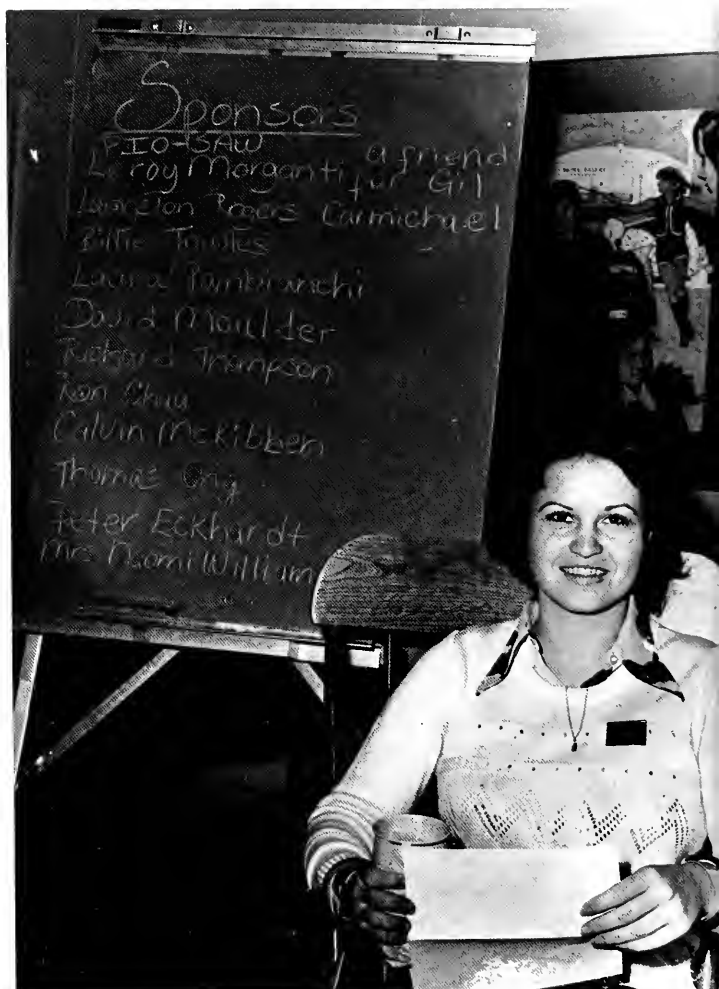 Sponsors
PIO-SAW
Leroy Morganti a friend
for Gil
Rogers Carmichael
Billie Towles
Laura Pambianchi
David Moulder
Richard Thompson
Ron Chuu
Calvin McKibben
Thomas Ong
Peter Eckhardt
Mrs Naomi William